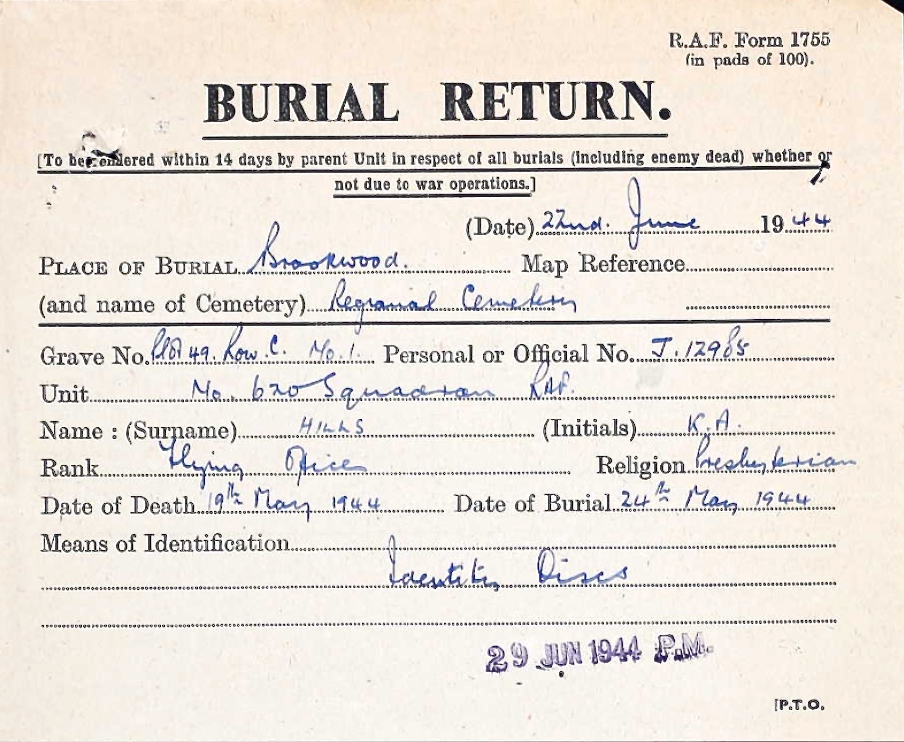 R.A.F. Form 1755
(in pads of 100).
BURIAL RETURN.
[To be rendered within 14 days by parent Unit in respect of all burials (including enemy dead) whether or
not due to war operations.]
(Date) 22nd. June 1944
PLACE OF BURIAL Brookwood. Map Reference
(and name of Cemetery) Regional Cemetery
Grave No. Plot 49. Row. C. No. 1. Personal or Official No. J.12985
Unit No. 620 Squadron RAF.
Name : (Surname) HILLS (Initials) K.A.
Rank Flying Officer Religion Presbyterian
Date of Death 19th May 1944 Date of Burial 24th May 1944
Means of Identification
Identity Discs
29 JUN 1944 P.M.
[P.T.O.